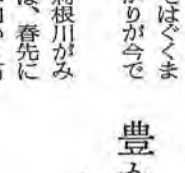 とはぐくま
がりが今で
利根川がみ
は、春先に
豊か